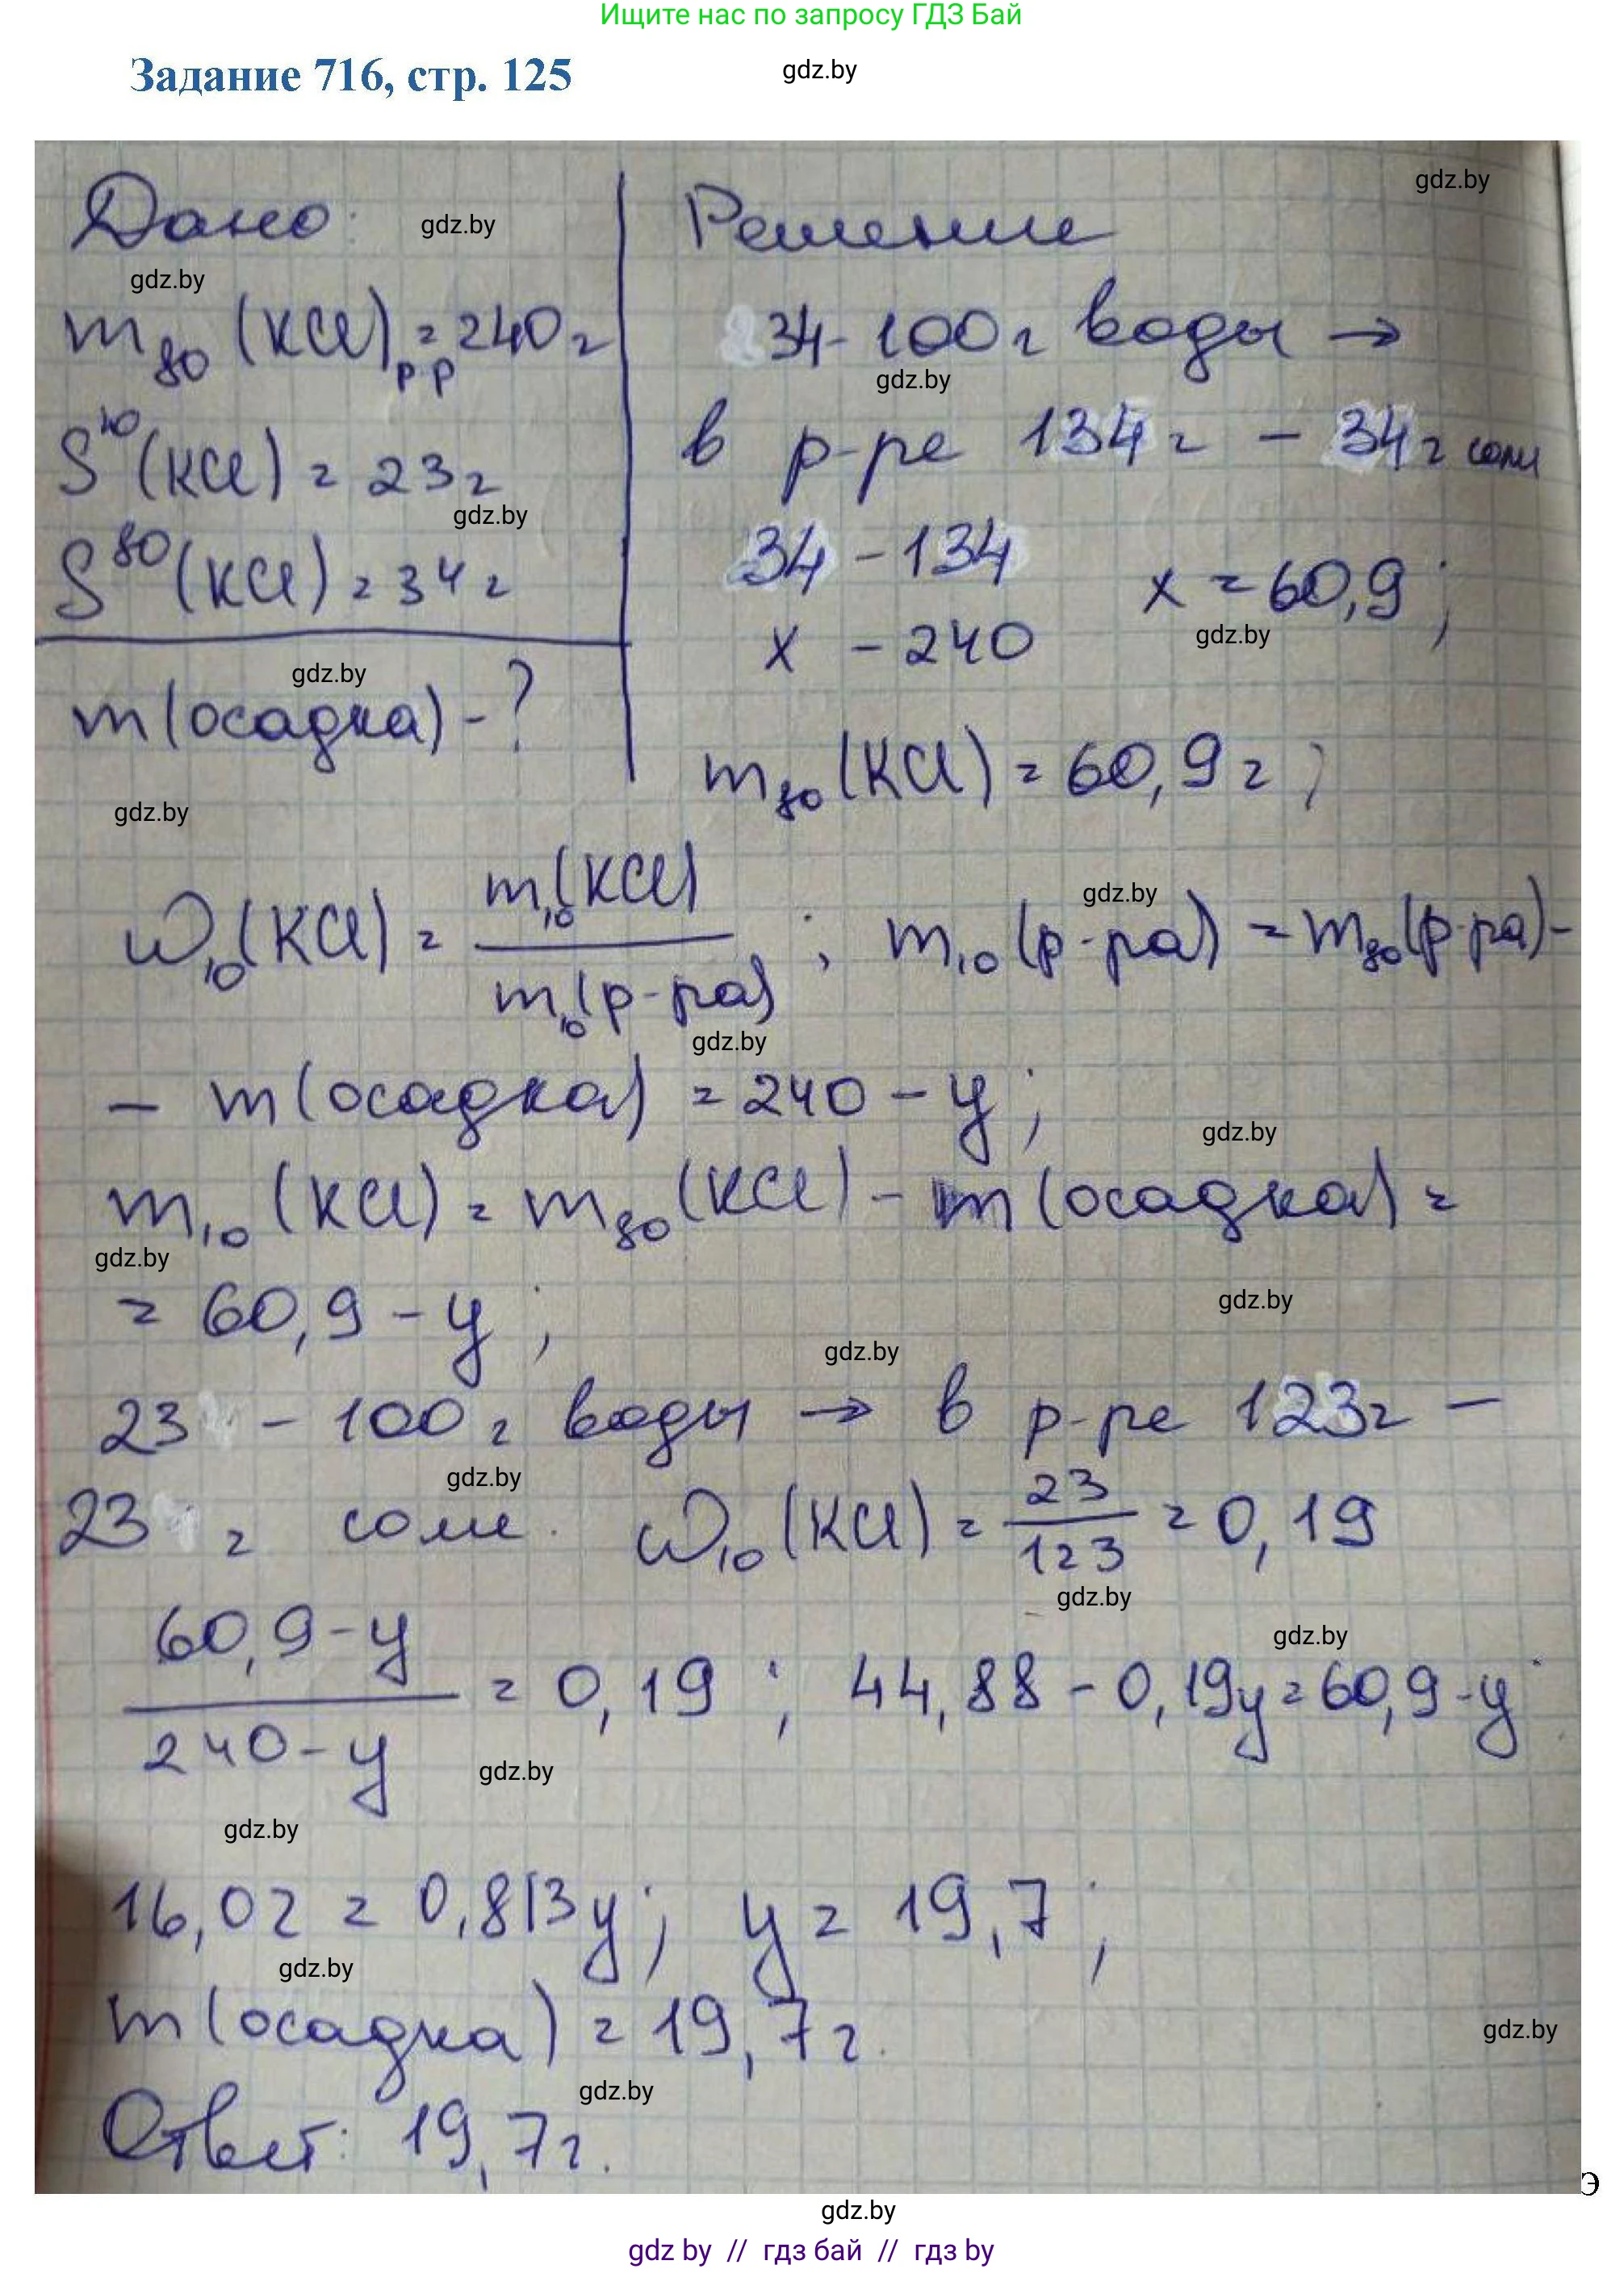 Ищите нас по запросу ГДЗ Бай
Задание 716, стр. 125
gdz.by
gdz.by
Дано:
gdz.by
Решение
gdz.by
m₈₀ (KCl)р-р = 240 г
34 - 100 г воды →
gdz.by
S¹⁰(KCl) = 23 г
в р-ре 134 г - 34 г соли
gdz.by
S⁸⁰(KCl) = 34 г
34 - 134
x = 60,9;
gdz.by
x - 240
gdz.by
m(осадка) - ?
m₈₀(KCl) = 60,9 г;
gdz.by
ω₁₀(KCl) = m₁₀(KCl) / m₁₀(р-ра) ; m₁₀(р-ра) = m₈₀(р-ра) -
gdz.by
gdz.by
- m(осадка) = 240 - y;
gdz.by
m₁₀(KCl) = m₈₀(KCl) - m(осадка) =
gdz.by
= 60,9 - y;
gdz.by
gdz.by
23 - 100 г воды → в р-ре 123 г -
gdz.by
23 г соли. ω₁₀(KCl) = 23/123 = 0,19
gdz.by
gdz.by
60,9 - y / 240 - y = 0,19 ; 44,88 - 0,19y = 60,9 - y
gdz.by
gdz.by
16,02 = 0,813y; y = 19,7;
gdz.by
m(осадка) = 19,7 г.
gdz.by
gdz.by
Ответ: 19,7 г.
э
gdz.by
gdz by // гдз бай // гдз by